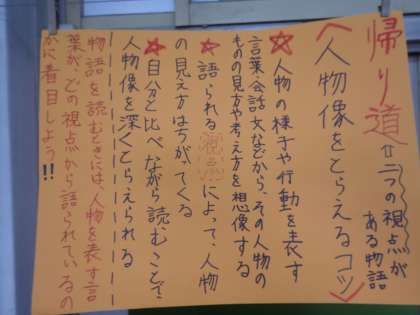 帰り道 ⇐二つの視点が
ある物語
〈人物像をとらえるコツ〉
☆人物の様子や行動を表す
言葉・会話文などから、その人物の
ものの見方や考え方を想像する
★語られる視点によって、人物
の見え方はちがってくる
★自分と比べながら読むことで
人物像を深くとらえられる
物語を読むときには、人物を表す言
葉が、どの視点から語られているの
かに着目しよう!!